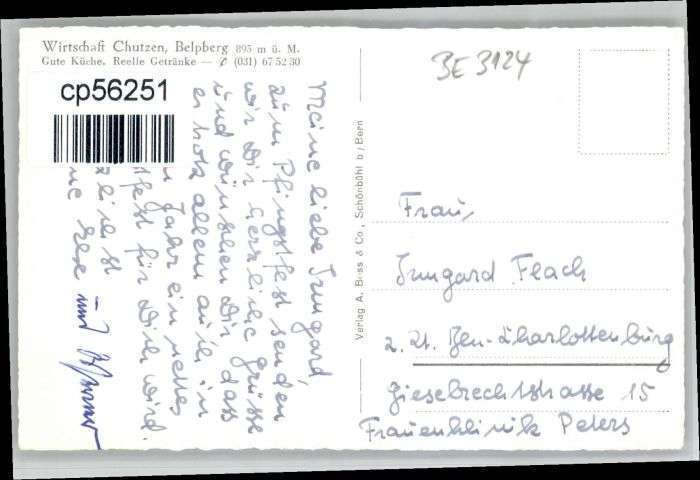 Wirtschaft Chutzen, Belpberg 895 m ü. M.
Gute Küche. Reelle Getränke — ✆ (031) 67 52 30
cp56251
BE 3124
Meine liebe Irmgard,
zum Pfingstfest senden
wir Dir herzliche Grüsse
und wünschen Dir dass
es trotz allem auch in
Jahr ein nettes
fest für Dich wird.
zlichst
und
Verlag A. Boss & Co., Schönbühl b/Bern
Frau
Irmgard Flach
z. Zt. Bln-Charlottenburg
Giesebrechtstrasse 15
Frauenklinik Peters